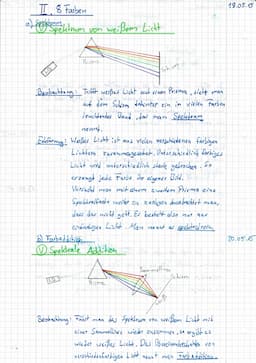 II. 8 Farben
18.05.15
a) Spektrum
① Spektrum von weißem Licht
Prisma
Schirm
Beobachtung: Trifft weißes Licht auf einen Prisma, sieht man
auf dem Schirm dahinter ein in vielen Farben
leuchtendes Band, das man Spektrum
nennt.
Erklärung: Weißes Licht ist aus vielen verschiedenen farbigen
Lichtern zusammengesetzt. Unterschiedlich farbiges
Licht wird unterschiedlich stark gebrochen. So
erzeugt jede Farbe ihr eigenes Bild.
Versucht man mit einem zweiten Prisma eine
Spektralfarbe weiter zu zerlegen beobachtet man,
dass das nicht geht. Es besteht also nur aus
einfarbigen Licht. Man nennt es spektralrein.
b) Farbaddition
20.05.15
① Spektrale Addition
Sammellinse
Prisma
Schirm
Beobachtung: Fasst man das Spektrum von weißem Licht mit
einer Sammellinse wieder zusammen, so ergibt es
wieder weißes Licht. Das
verschiedenfarbigen Licht nennt man Farbaddition.